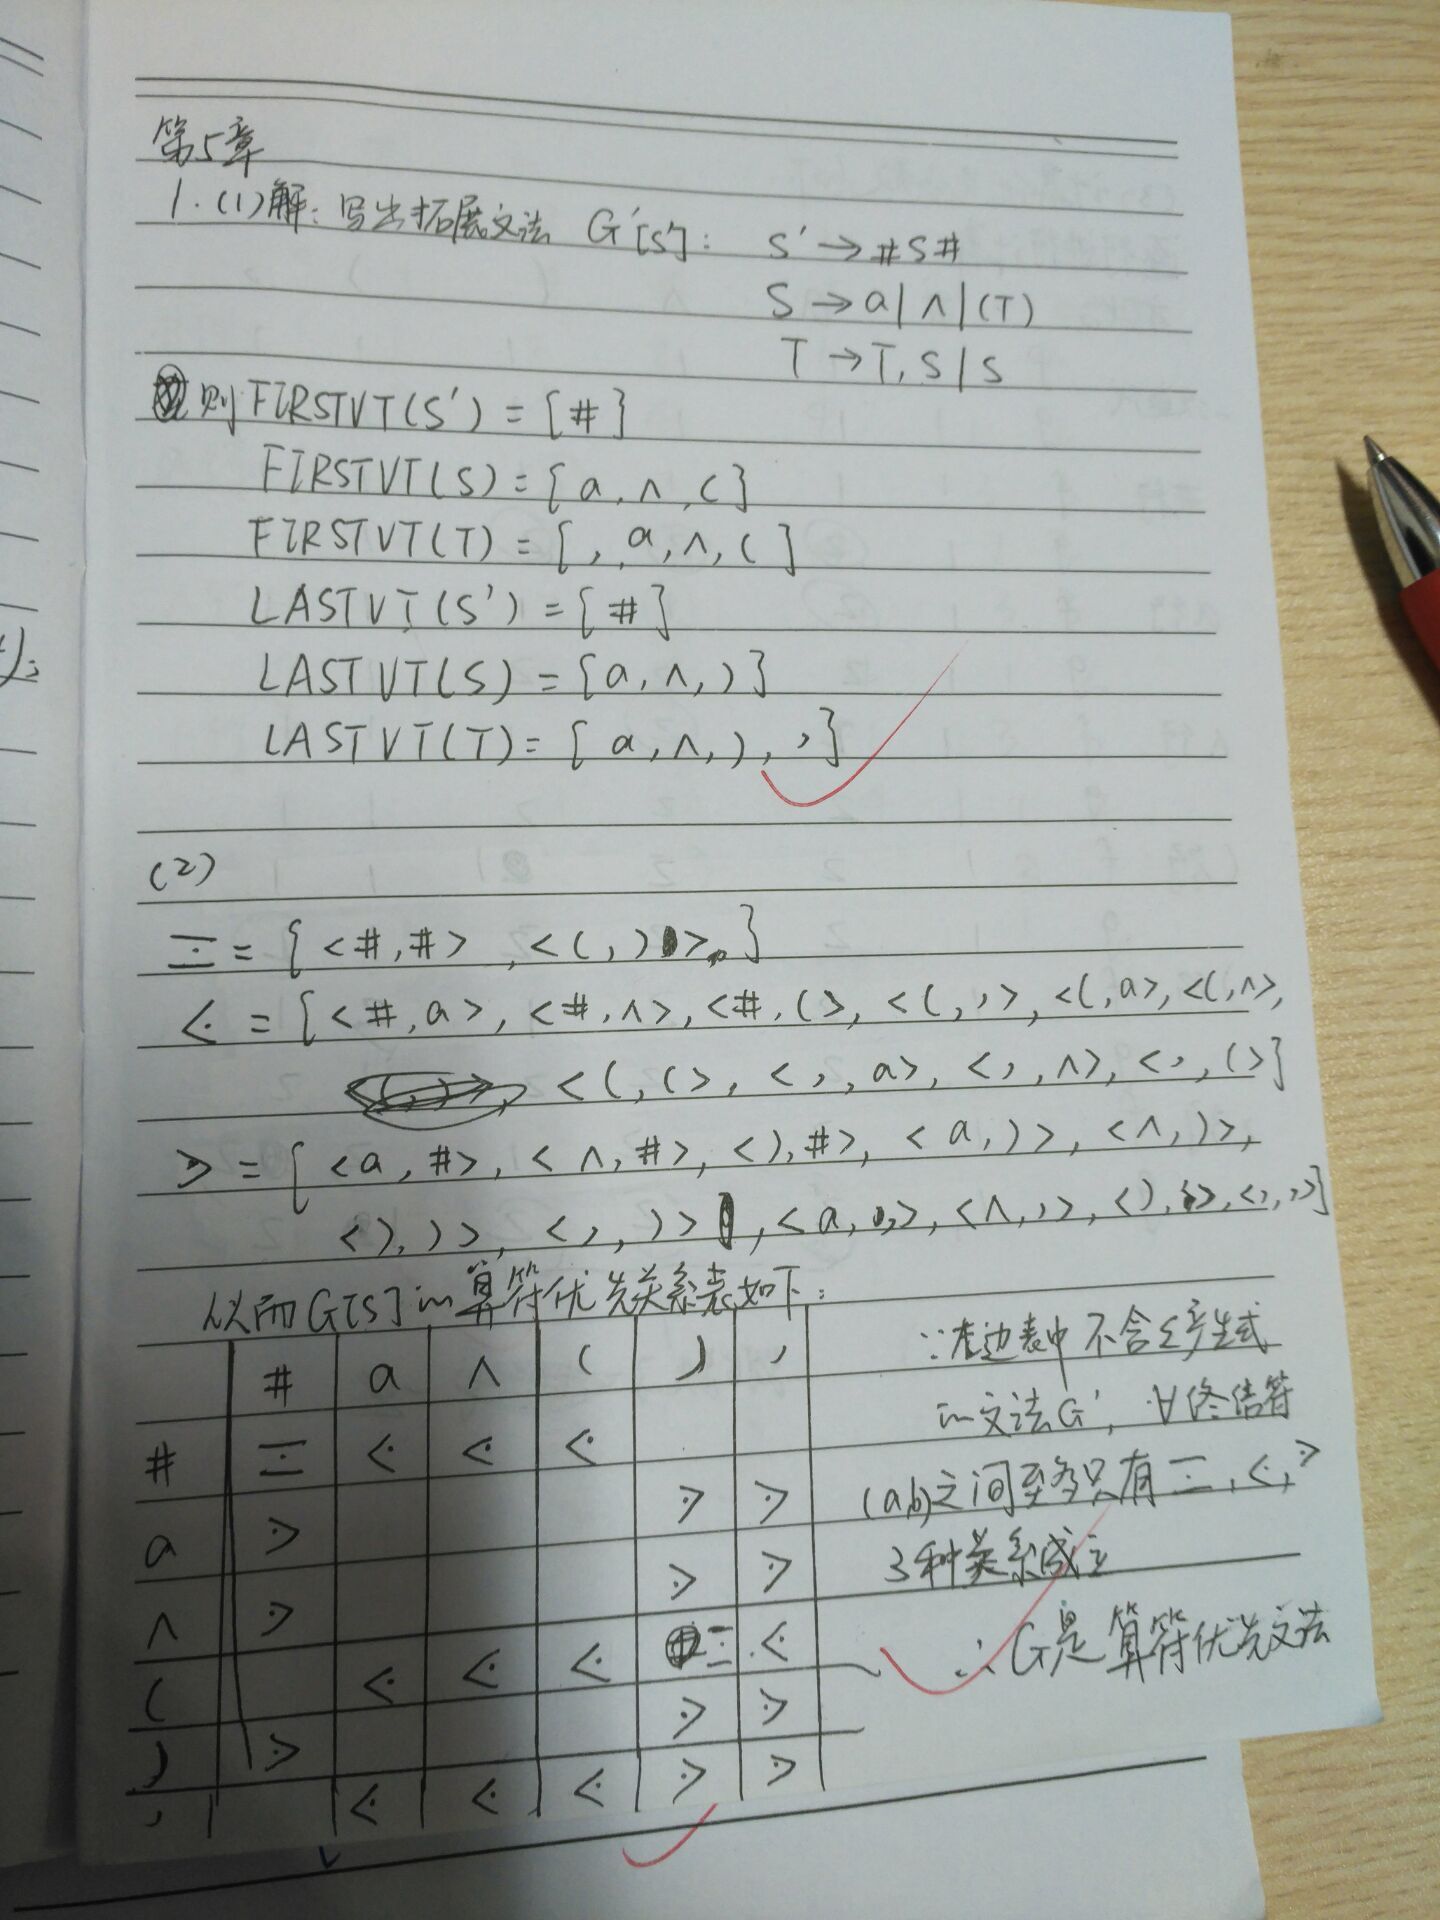 第5章
1.(1)解：写出拓展文法 G'[S']： S'→#S#
S→a|∧|(T)
T→T,S|S
则FIRSTVT(S')=[#]
FIRSTVT(S)={a,∧,(}
FIRSTVT(T)=[,,a,∧,(]
LASTVT(S')=[#]
LASTVT(S)={a,∧,)}
LASTVT(T)=[a,∧,),,}
(2)
≐={<#,#>,<(,)>}
⋖={<#,a>,<#,∧>,<#,(>,<(,,>,<(,a>,<(,∧>,
<(,(>,<,,a>,<,,∧>,<,,(>}
⋗={<a,#>,<∧,#>,<),#>,<a,)>,<∧,)>,
<),)>,<,,)>,<a,,>,<∧,,>,<),,>,<,,,>}
从而G[S]的算符优先关系表如下：
# a ∧ ( ) ,
# ≐ ⋖ ⋖ ⋖
a ⋗ ⋗ ⋗
∧ ⋗ ⋗ ⋗
( ⋖ ⋖ ⋖ ≐ ⋖
) ⋗ ⋗ ⋗
, ⋖ ⋖ ⋖ ⋗ ⋗
∵左边表中不含ε产生式
的文法G'，∀终结符
(a,b)之间至多只有≐,⋖,⋗
3种关系成立
∴G是算符优先文法